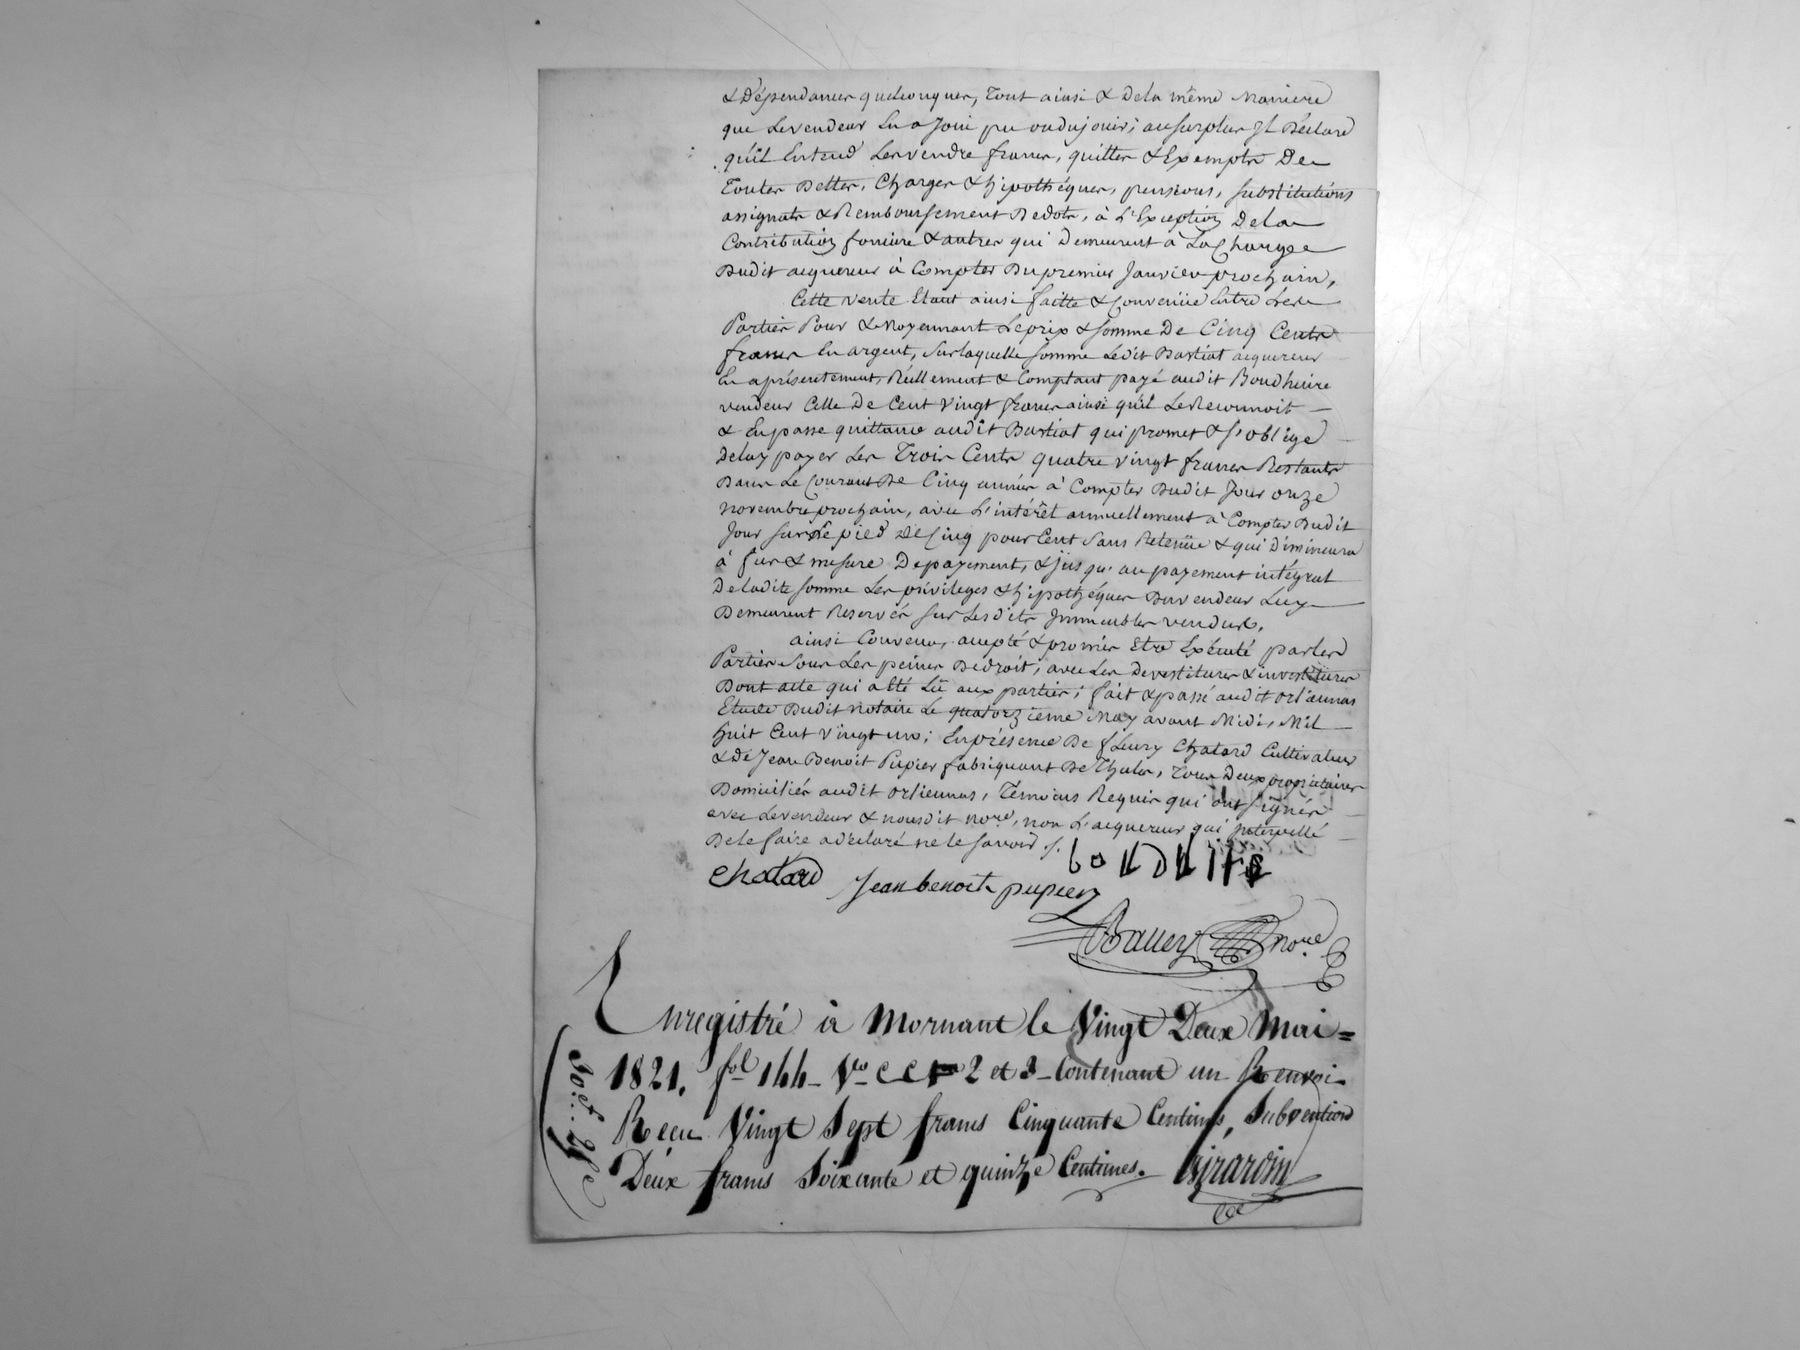 & Dépendances quelconques, Tout ainsi & dela même maniere
que Levendeur En a Joui pu ou du jouir; au surplus Il Déclare
qu'il Entend Les vendre francs, quittes & Exempts De
Toutes Dettes, Charges & hipothéques, pensions, substitutions
assignats & Remboursement De dots, à L'Exception De la
Contribution fonciere & autres qui Demeurent à La Charge
Dudit acquereur à Compter Du premier Janvier prochain,
Cette vente Etant ainsi faitte & Convenüe Entre Les
Parties Pour & Moyennant Le prix & somme De Cinq Cents
francs En argent, sur laquelle somme Ledit Bastiat acquereur
En a présentement, Réellement & Comptant payé audit Boudhuire
vendeur Celle De Cent vingt francs ainsi qu'il Le Reconnoit
& En passe quittance audit Bastiat qui promet & s'oblige
De luy payer Les Trois Cents quatre vingt francs Restants
Dans Le Courant De Cinq années à Compter Dudit Jour onze
novembre prochain, avec L'intérêt annuellement à Compter Dudit
Jour sur le pied De Cinq pour Cent sans Retenüe & qui Diminuera
à fur & mesure De payement, & jusqu'au payement intégral
De ladite somme Les privileges & hipothéques Du vendeur Luy
Demeurent Reservés sur Lesdits Immeubles vendus.
ainsi Convenu, accepté & promis Etre Exécuté par les
Parties sous Les peines De droit; avec Les Devestitures & investitures
Dont acte qui a Eté Lü aux parties; fait & passé audit Orlienas
Etude Dudit Notaire Le quatorzieme May avant Midi, Mil
huit Cent vingt un; En présence De fleury Chatard Cultivateur
& De Jean Benoit Pupier fabriquant De Thules, Tous Deux propriétaires
Domiciliés audit Orlienas, Témoins Requis qui ont signés
avec Le vendeur & nousdit no.re, non L'acquereur qui interpellé
De le faire a déclaré ne le savoir /.
Chatard Jean benoit pupier
Enregistré à Mornant le Vingt Deux Mai =
1821. fol 144 - Vo CC 2 et 3 - Contenant un Renvoi.
Recu Vingt Sept francs Cinquante Centimes, Subvention
Deux francs Soixante et quinze Centimes. Girardin